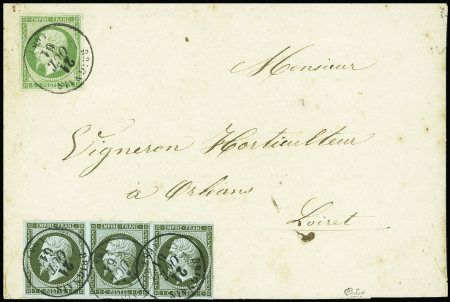 EMPIRE FRANC
POSTES
Monsieur
Vigneron Horticulteur
à Orléans
Loiret
EMPIRE FRANC EMPIRE FRANC EMPIRE FRANC
POSTES POSTES POSTES